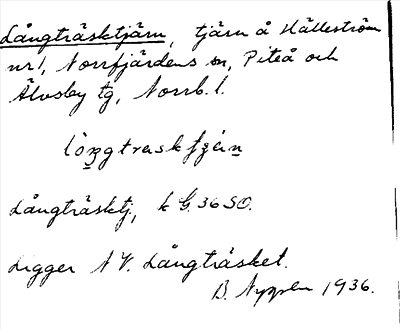 Långträsktjärn, tjärn å Hälleström
nr 1, Norrfjärdens sn, Piteå och
Älvsby tg, Norrb. l.
Långträsktj, k G. 36 SO.
Ligger N V. Långträsket.
B. 1936.